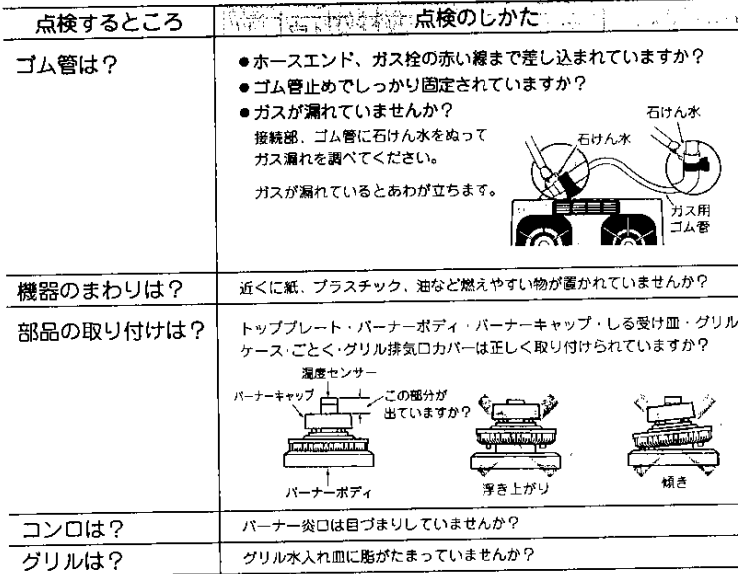 点検するところ
点検のしかた
ゴム管は？
●ホースエンド、ガス栓の赤い線まで差し込まれていますか？
●ゴム管止めでしっかり固定されていますか？
●ガスが漏れていませんか？
接続部、ゴム管に石けん水をぬって
ガス漏れを調べてください。
ガスが漏れているとあわが立ちます。
石けん水
石けん水
ガス用
ゴム管
機器のまわりは？
近くに紙、プラスチック、油など燃えやすい物が置かれていませんか？
部品の取り付けは？
トッププレート・バーナーボディ・バーナーキャップ・しる受け皿・グリル
ケース・ごとく・グリル排気口カバーは正しく取り付けられていますか？
温度センサー
バーナーキャップ
この部分が
出ていますか？
バーナーボディ
浮き上がり
傾き
コンロは？
バーナー炎口は目づまりしていませんか？
グリルは？
グリル水入れ皿に脂がたまっていませんか？